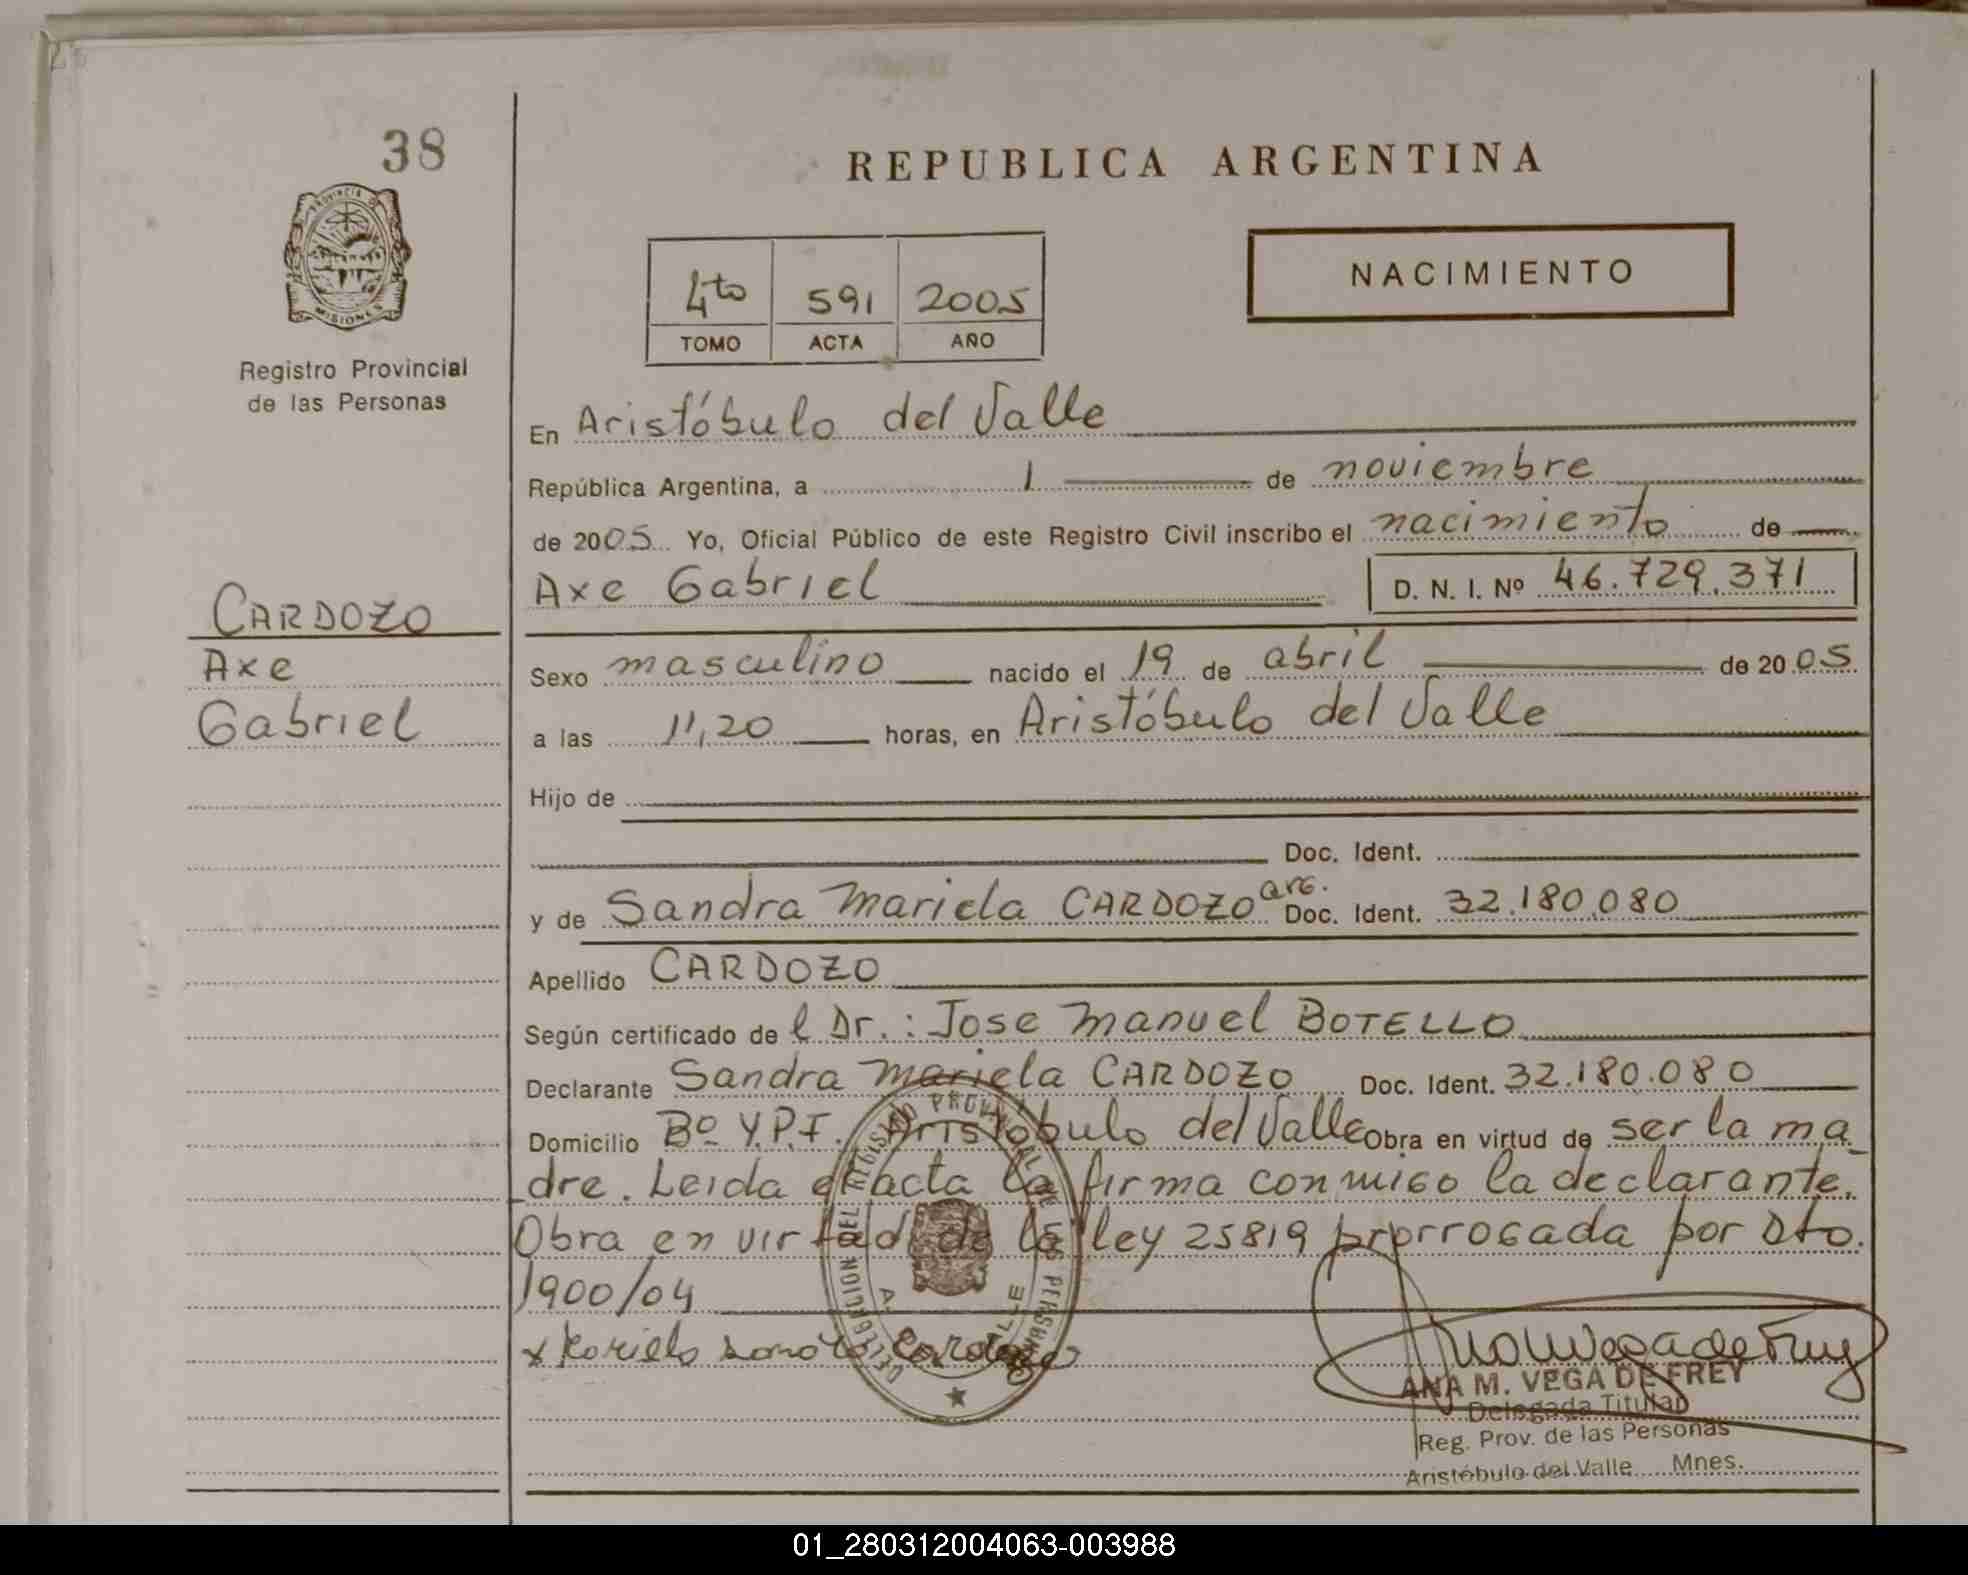 38
PROVINCIA DE
MISIONES
Registro Provincial
de las Personas
CARDOZO
Axe
Gabriel
REPUBLICA ARGENTINA
4to 591 2005
TOMO ACTA AÑO
NACIMIENTO
En Aristóbulo del Valle
República Argentina, a 1 de noviembre
de 2005 Yo, Oficial Público de este Registro Civil inscribo el nacimiento de
Axe Gabriel D. N. I. Nº 46.729.371
Sexo masculino nacido el 19 de abril de 2005
a las 11,20 horas, en Aristóbulo del Valle
Hijo de
Doc. Ident.
y de Sandra Mariela CARDOZO arg. Doc. Ident. 32.180.080
Apellido CARDOZO
Según certificado de l Dr.: Jose Manuel BOTELLO
Declarante Sandra Mariela CARDOZO Doc. Ident. 32.180.080
Domicilio Bº Y.P.F. Aristóbulo del Valle Obra en virtud de ser la ma
dre. Leida el acta la firma conmigo la declarante.
Obra en virtud de la ley 25819 prorrogada por Dto.
1900/04
Cardozo
DELEGACION DEL REGISTRO PROVINCIAL DE LAS PERSONAS
A. VALLE
ANA M. VEGA DE FREY
Delegada Titular
Reg. Prov. de las Personas
Aristóbulo del Valle Mnes.
01_280312004063-003988